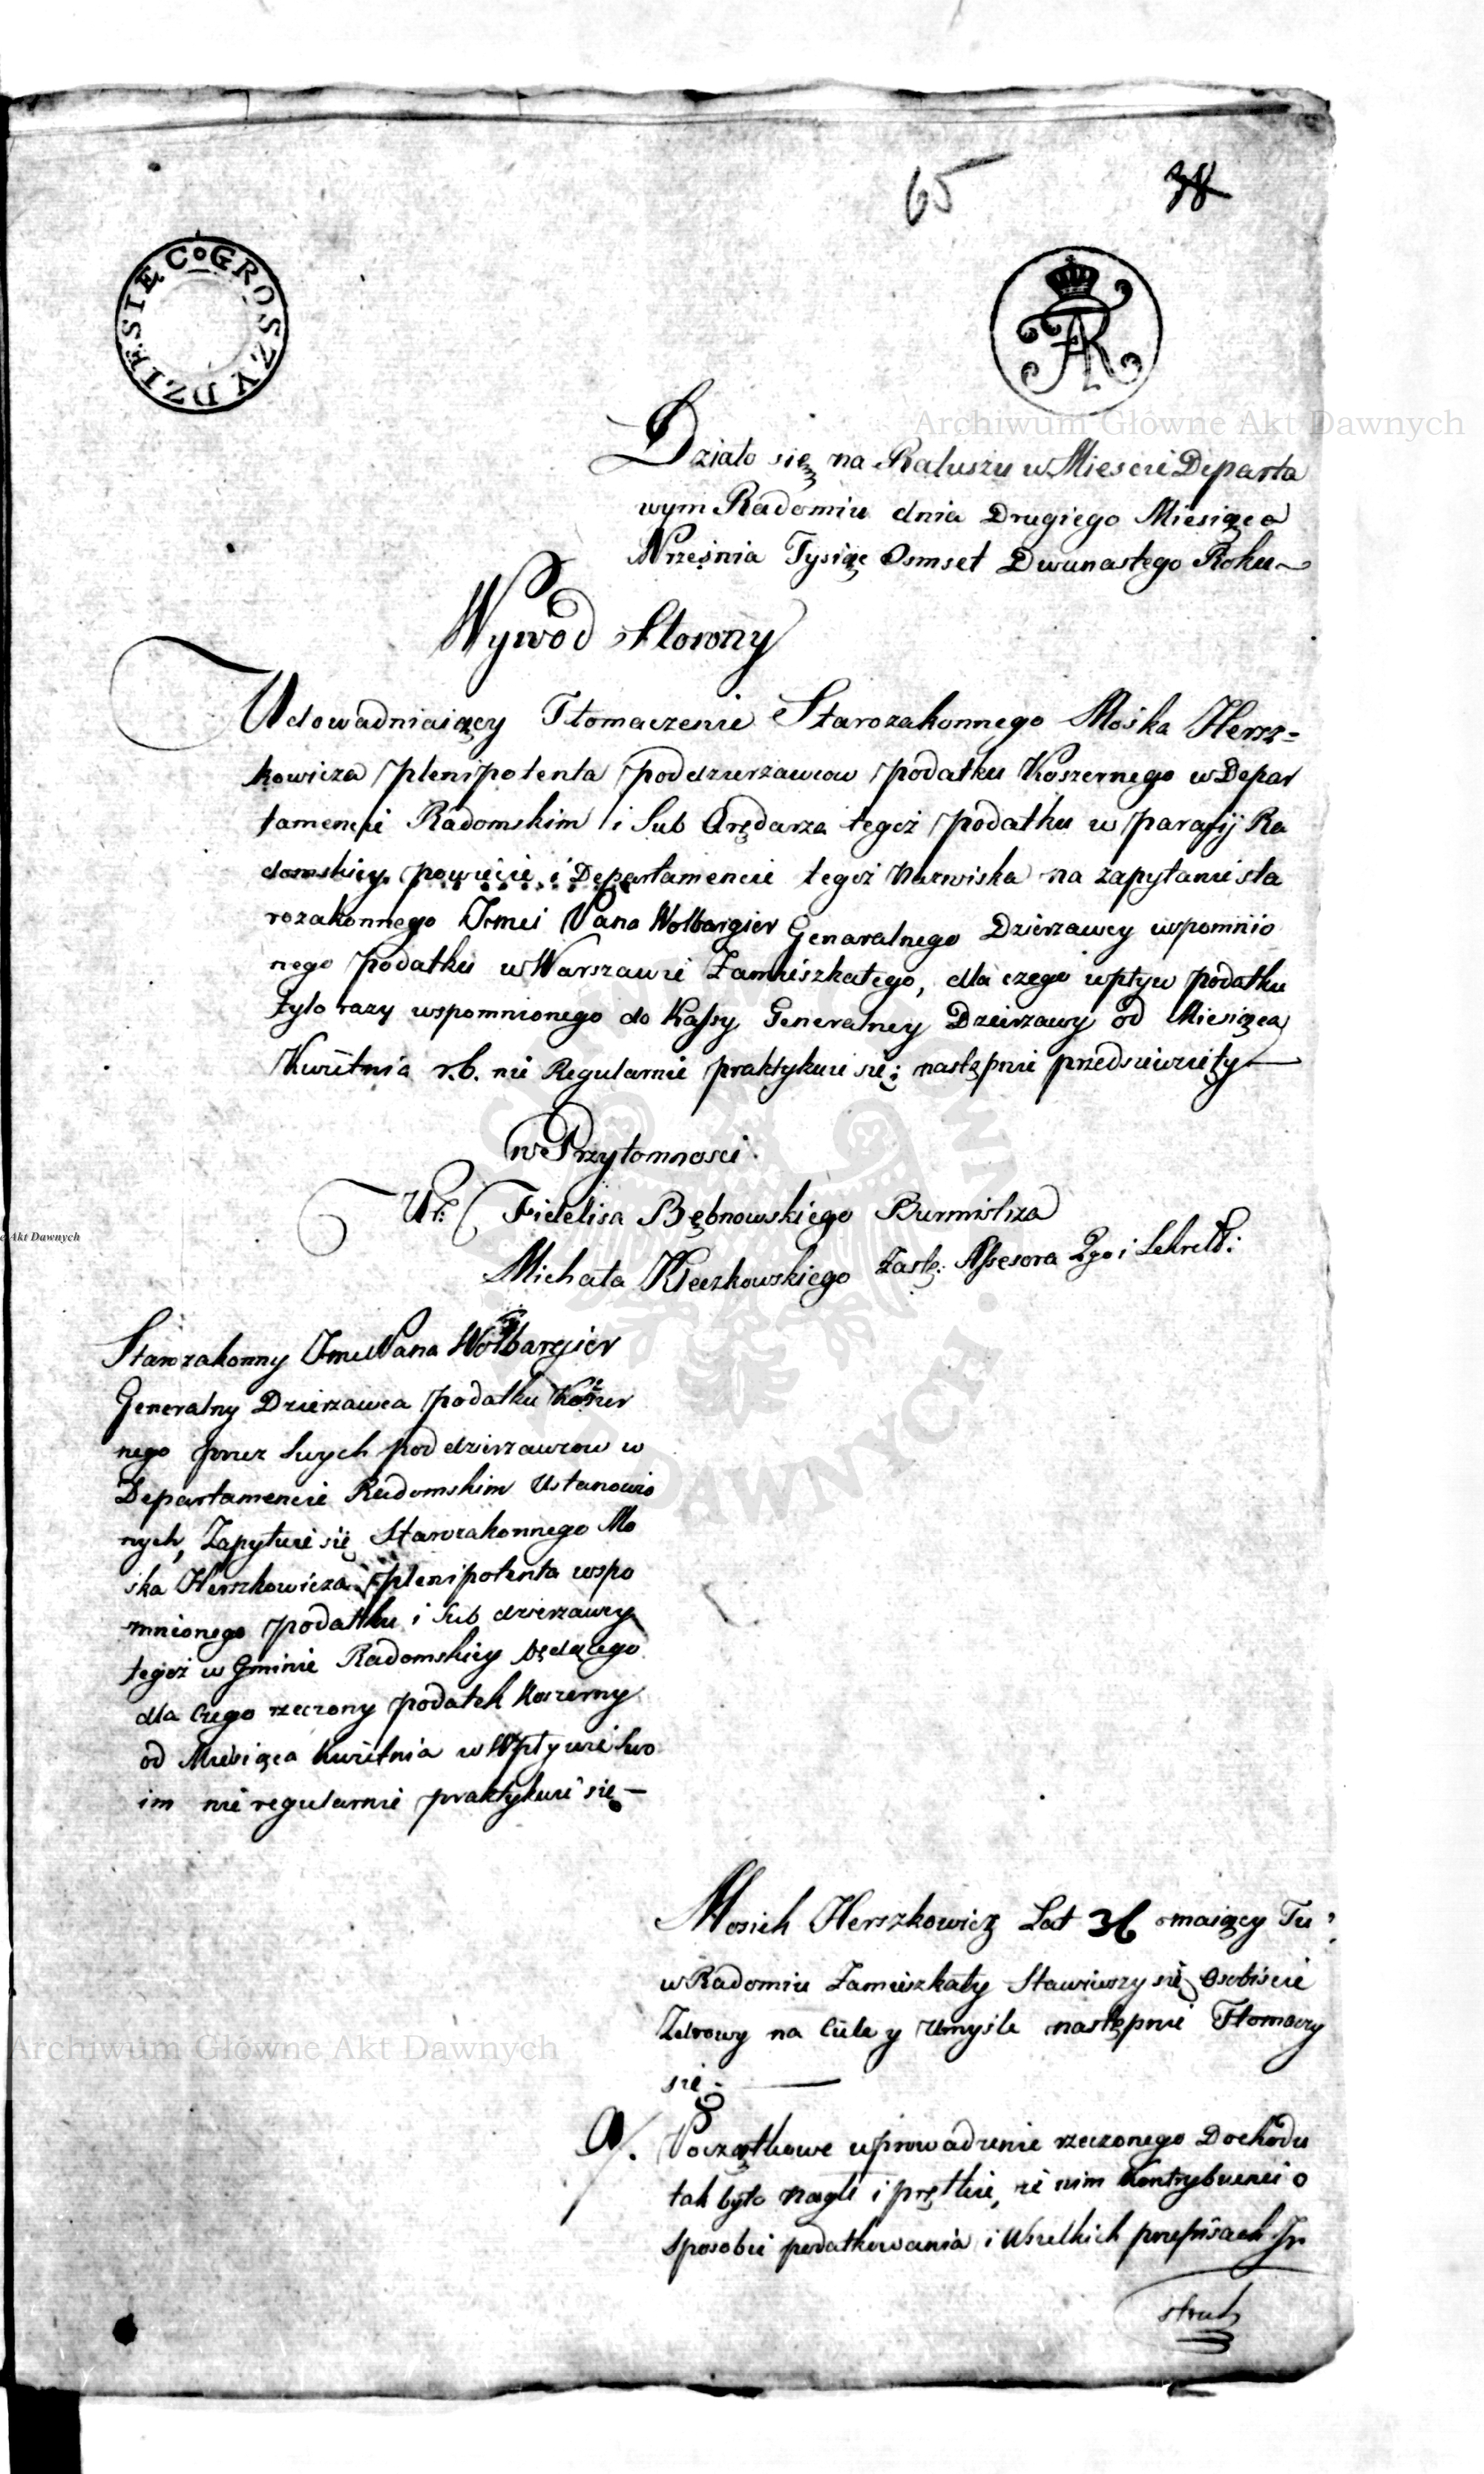 65 38
DZIESIĘC GROSZY
FAR
Archiwum Główne Akt Dawnych
Działo się na Ratuszu w Miescie Departa
wym Radomiu dnia Drugiego Miesiąca
Września Tysiąc Osmset Dwunastego Roku
Wywod Słowny
Udowadniaiący Tłomaczenie Starozakonnego Mośka Hersz=
kowicza plenipotenta poddzierzawcow podatku Koszernego w Depar
tamencie Radomskim i Sub Arędarza tegoż podatku w parafij Ra
domskiey powiecie i Departamencie tegoż Nazwiska na zapytanie sta
rozakonnego Pana Wolbargier Genaralnego Dzierzawcy wspomnio
nego podatku w Warszawie Zamieszkałego, dla czego wpływ podatku
tylo razy wspomnionego do Kassy Generalney Dzierzawy od Miesiąca
Kwietnia r.b. nie Regularnie praktykuie się; następnie przedsięwzięty
w Przytomnosci.
Ur: Fidelisa Bębnowskiego Burmistrza
Michała Kleczkowskiego Zastę: Assesora 2go i Sekret:
e Akt Dawnych
Starozakonny Pana Wolbargier
Generalny Dzierzawca podatku Koszer
nego przez swych pod dzierzawcow w
Departamencie Radomskim Ustanowio
nych, Zapytuie się Starozakonnego Mo
śka Herszkowicza plenipotenta wspo
mnionego podatku i Sub dzierzawcy
tegoż w Gminie Radomskiey będącego
dla czego rzeczony podatek Koszerny
od Miesiąca Kwietnia w Wpływie swo
im nie regularnie praktykuie się—
Mosiek Herszkowicz Lat 36 maiący Tu
w Radomiu Zamieszkały Stawiwszy się Osobiscie
Zdrowy na Ciele y Umysle następnie Tłomaczy
się.
Początkowe uprowadzenie rzeczonego Dochodu
tak było nagłe i prętkie, że nim Kontrybuenci o
sposobie podatkowania i Wszelkich przepisach In
struk
Archiwum Główne Akt Dawnych